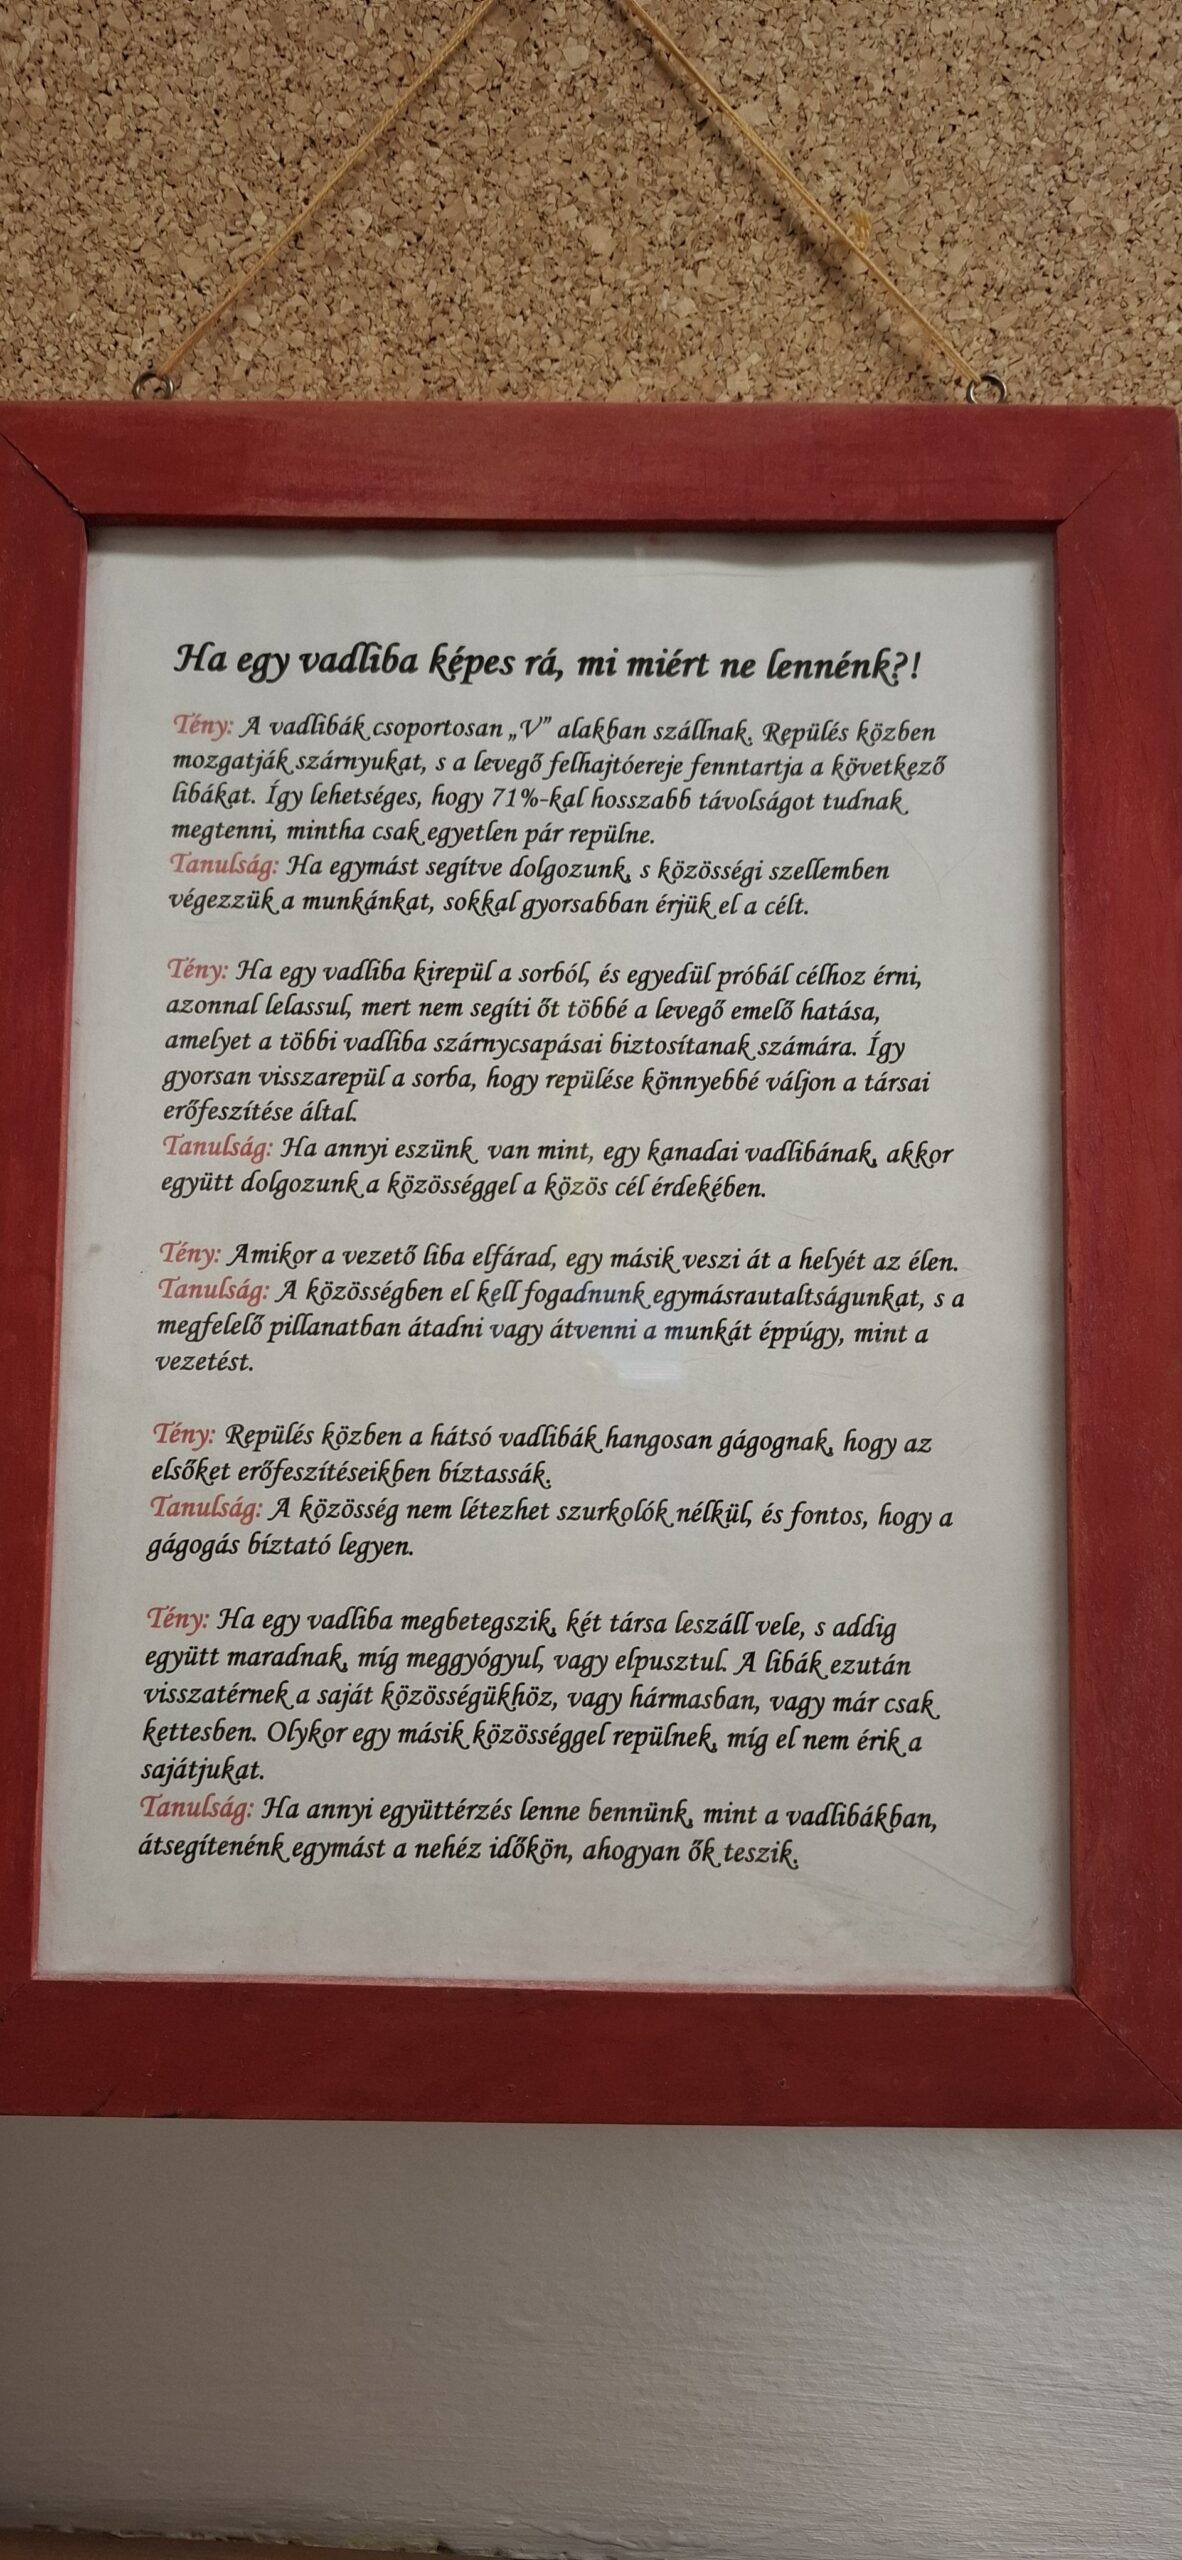 Ha egy vadliba képes rá, mi miért ne lennénk?!
Tény: A vadlibák csoportosan „V” alakban szállnak. Repülés közben
mozgatják szárnyukat, s a levegő felhajtóereje fenntartja a következő
libákat. Így lehetséges, hogy 71%-kal hosszabb távolságot tudnak
megtenni, mintha csak egyetlen pár repülne.
Tanulság: Ha egymást segítve dolgozunk, s közösségi szellemben
végezzük a munkánkat, sokkal gyorsabban érjük el a célt.
Tény: Ha egy vadliba kirepül a sorból, és egyedül próbál célhoz érni,
azonnal lelassul, mert nem segíti őt többé a levegő emelő hatása,
amelyet a többi vadliba szárnycsapásai biztosítanak számára. Így
gyorsan visszarepül a sorba, hogy repülése könnyebbé váljon a társai
erőfeszítése által.
Tanulság: Ha annyi eszünk van mint, egy kanadai vadlibának, akkor
együtt dolgozunk a közösséggel a közös cél érdekében.
Tény: Amikor a vezető liba elfárad, egy másik veszi át a helyét az élen.
Tanulság: A közösségben el kell fogadnunk egymásrautaltságunkat, s a
megfelelő pillanatban átadni vagy átvenni a munkát éppúgy, mint a
vezetést.
Tény: Repülés közben a hátsó vadlibák hangosan gágognak, hogy az
elsőket erőfeszítéseikben bíztassák.
Tanulság: A közösség nem létezhet szurkolók nélkül, és fontos, hogy a
gágogás bíztató legyen.
Tény: Ha egy vadliba megbetegszik, két társa leszáll vele, s addig
együtt maradnak, míg meggyógyul, vagy elpusztul. A libák ezután
visszatérnek a saját közösségükhöz, vagy hármasban, vagy már csak
kettesben. Olykor egy másik közösséggel repülnek, míg el nem érik a
sajátjukat.
Tanulság: Ha annyi együttérzés lenne bennünk, mint a vadlibákban,
átsegítenénk egymást a nehéz időkön, ahogyan ők teszik.